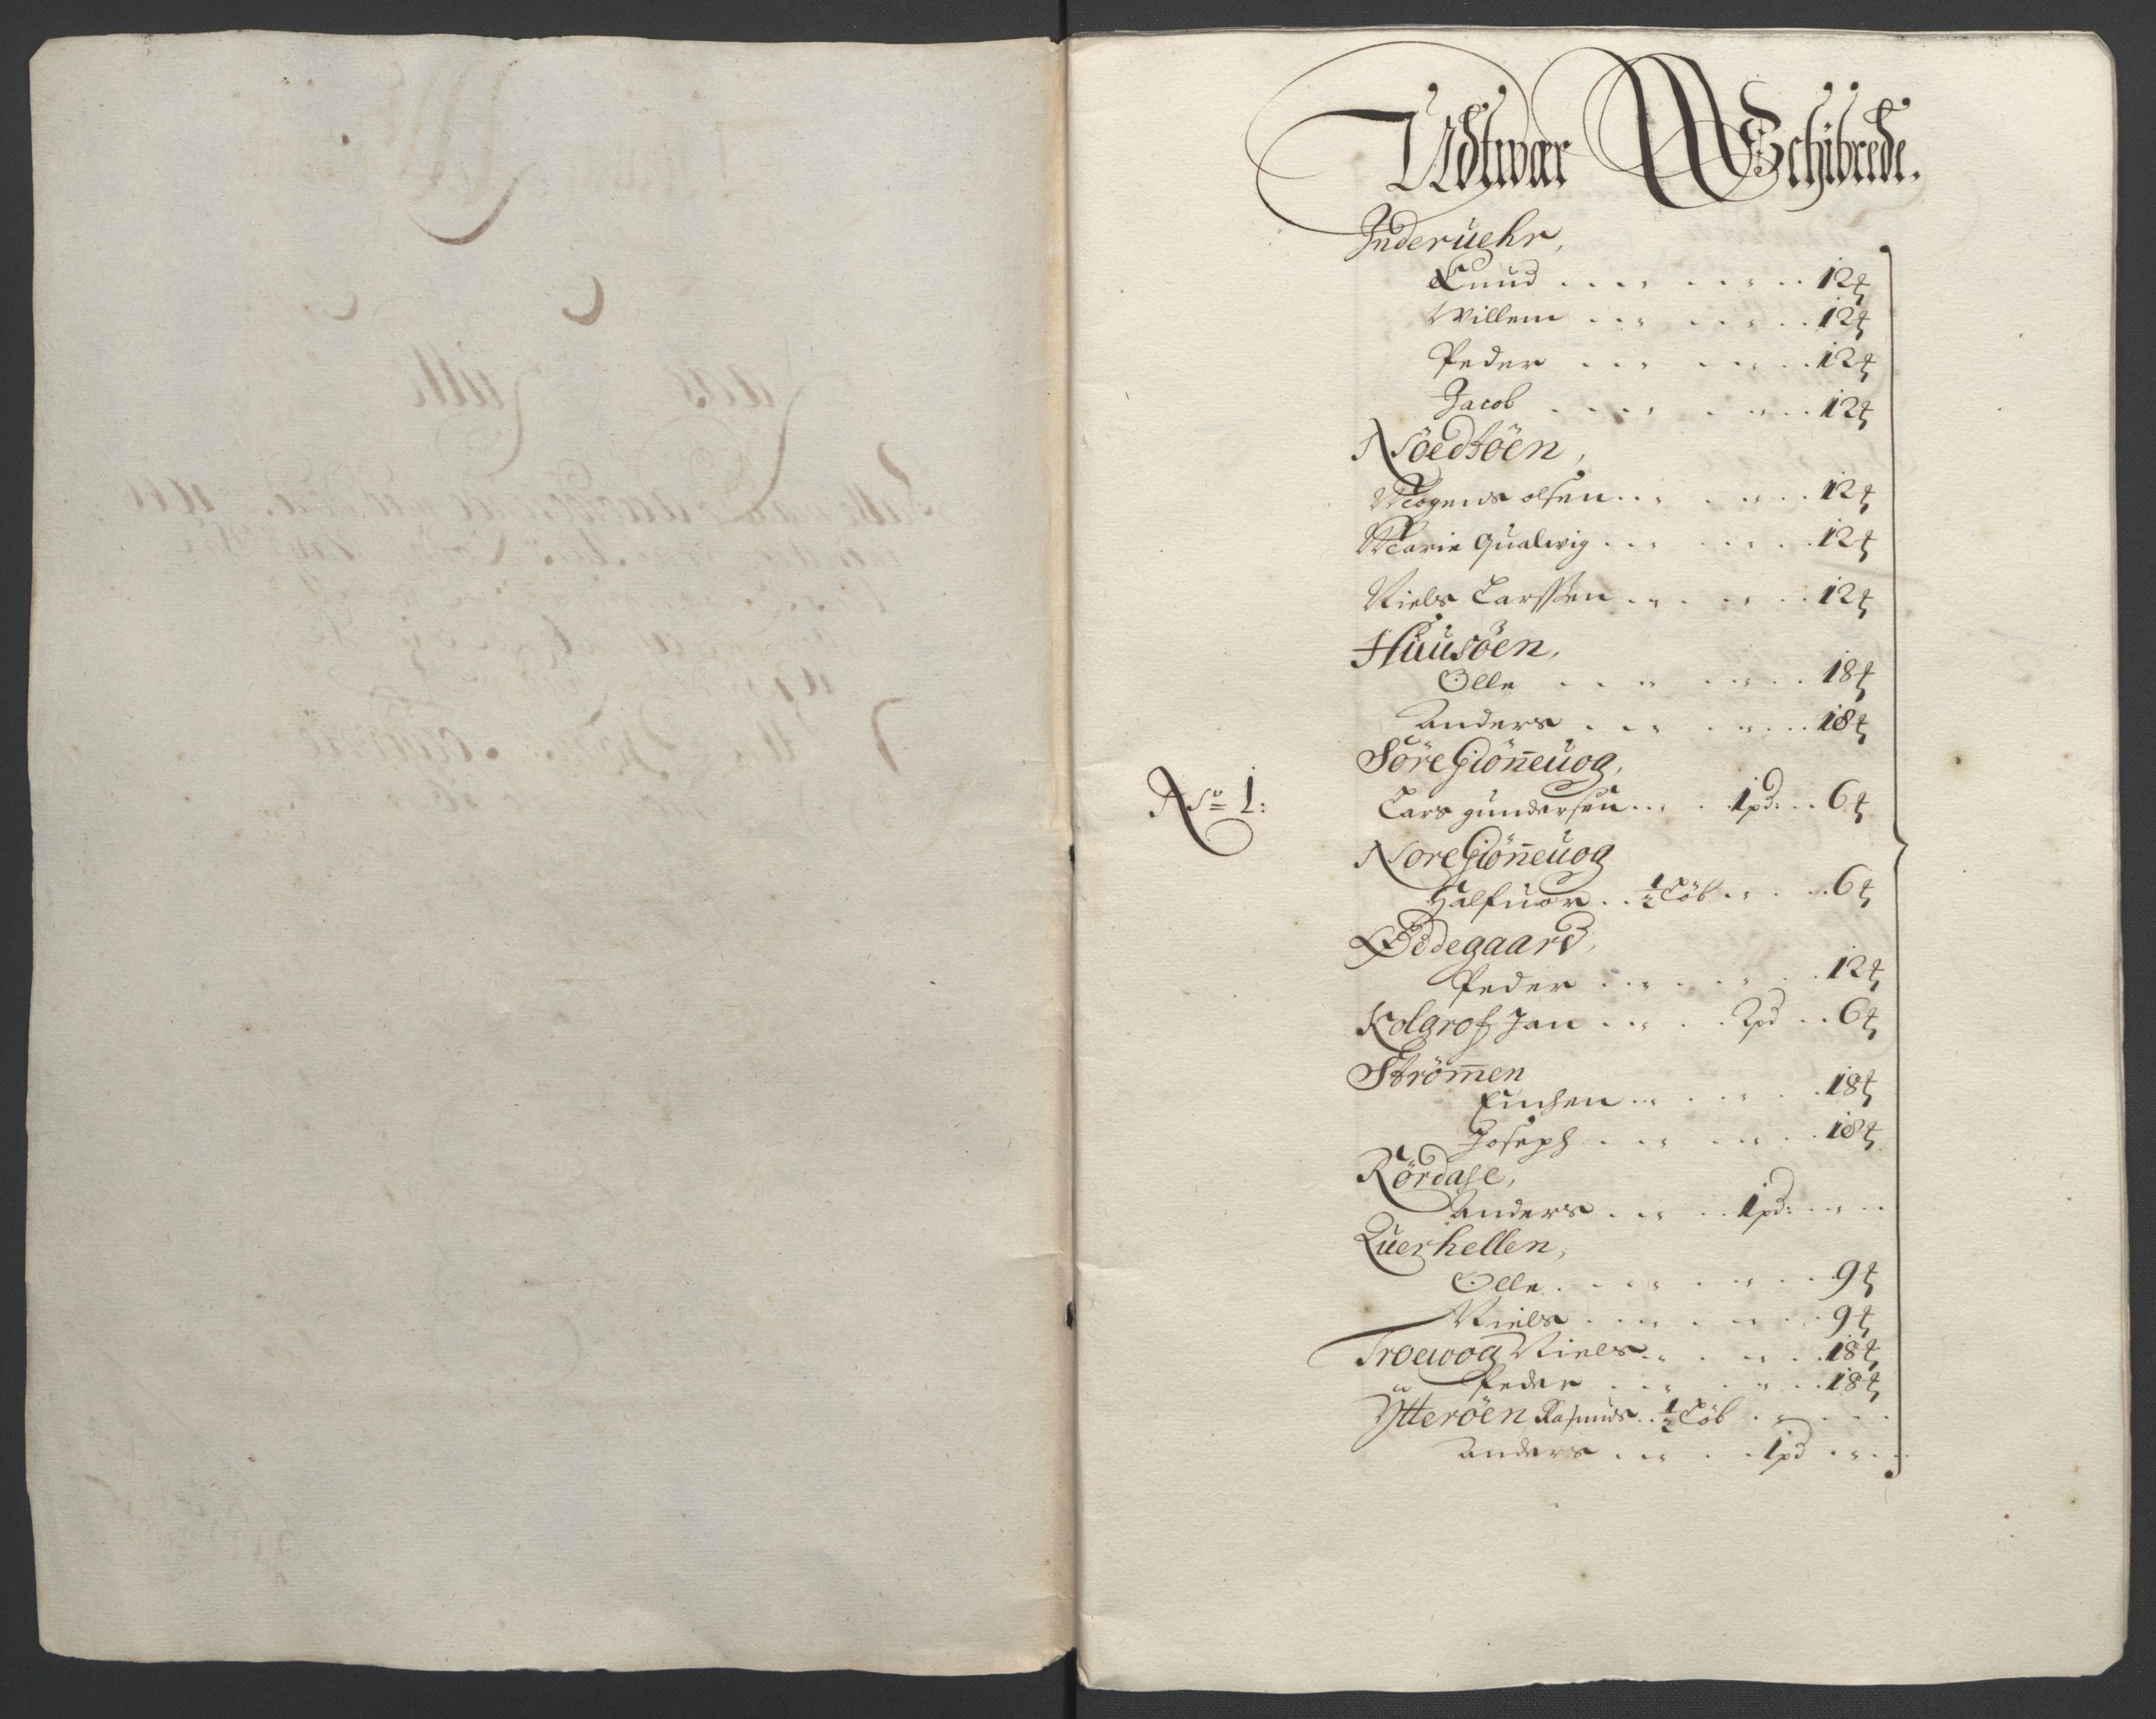 Udtwær Schibrede.
Inderuehr,
Knud . . . . . . . . 12 ℔
Willem . . . . . . . 12 ℔
Peder . . . . . . . 12 ℔
Jacob . . . . . . . . 12 ℔
Nöedtöen,
Mogens olsen . . . . . . . 12 ℔
Marie Qualwig . . . . . . . 12 ℔
Niels Larssen . . . . . . . 12 ℔
Huusöen,
Olle . . . . . . . . 18 ℔
Anders . . . . . . . 18 ℔
Söre Giön̄euog,
No 1:
Lars gundersen . . . . 1 pd: . . 6 ℔
Nore Giön̄euog
Halfuor . . ½ Löb . . . . . 6 ℔
Ödegaard,
Peder . . . . . . . 12 ℔
Kolgrof Jan . . . . 2 pd . . 6 ℔
Ström̄en
. . . . . . . 18 ℔
Joseph . . . . . . . 18 ℔
Rördase,
Anders . . . . . 1 pd: . . . .
Querhellen,
Olle . . . . . . . . 9 ℔
Niels . . . . . . . . 9 ℔
Troewog Niels . . . . . . 18 ℔
Peder . . . . . . . 18 ℔
Ytteröen Rasmus . . ½ Löb . . . . .
Anders . . . . . 1 pd . . . .